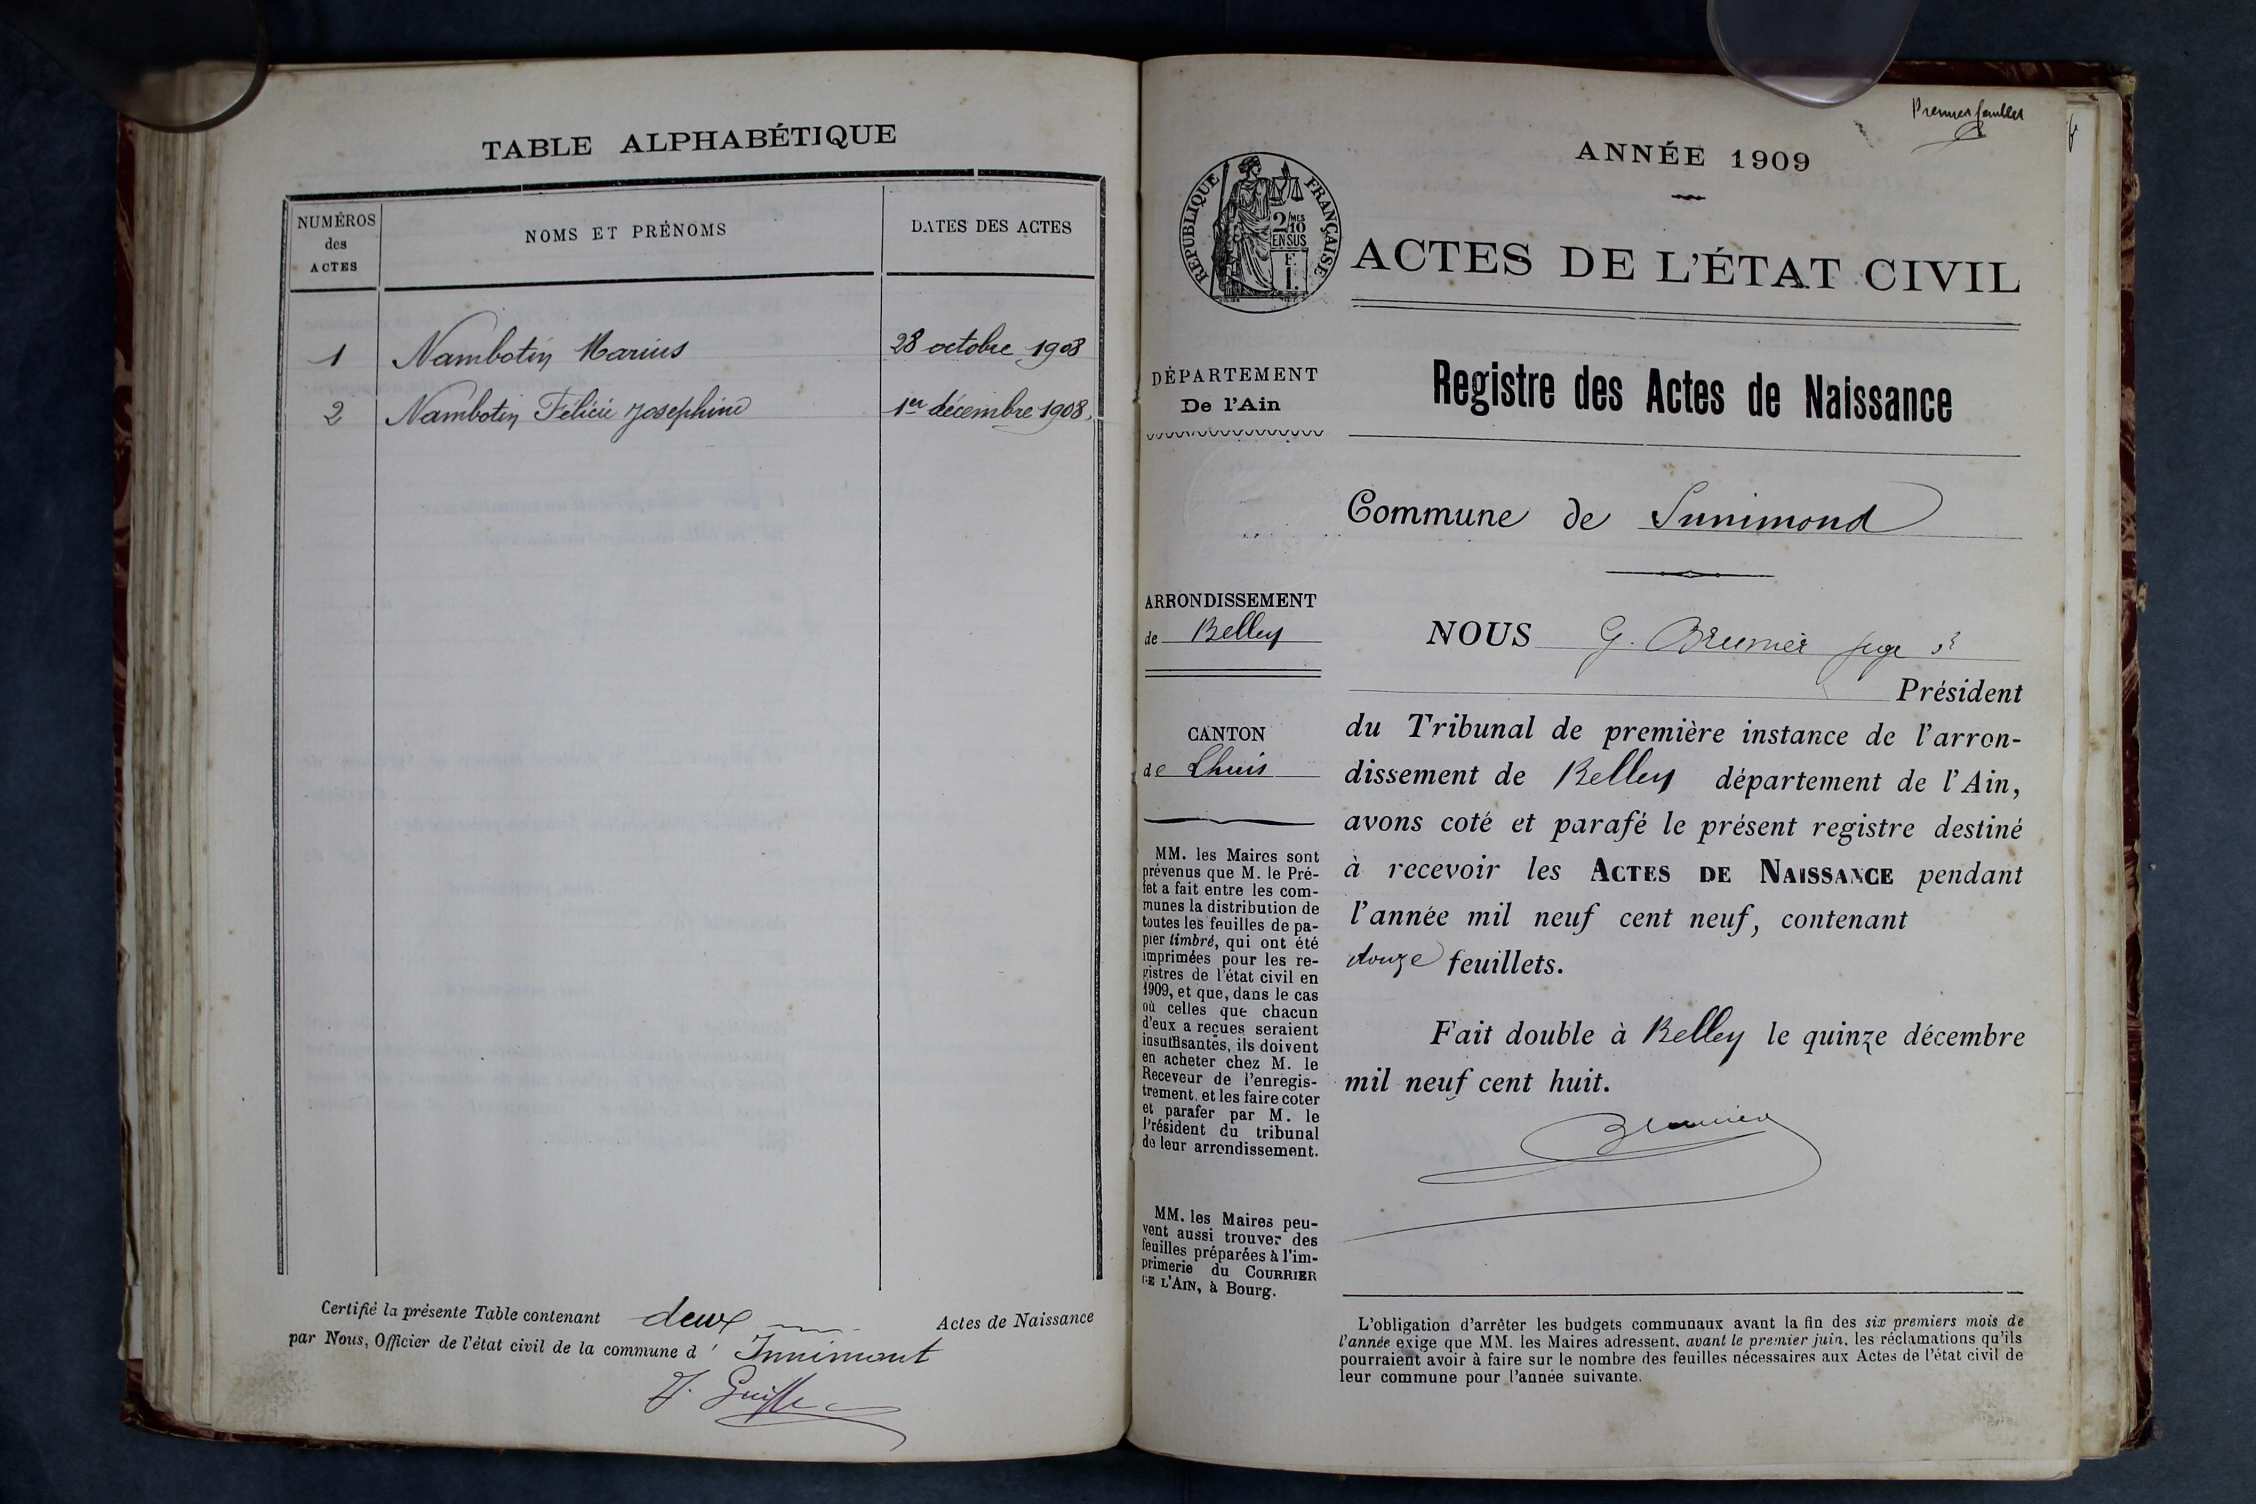 TABLE ALPHABÉTIQUE
NUMÉROS
des
ACTES
NOMS ET PRÉNOMS
DATES DES ACTES
1 Nambotin Marius 28 octobre 1908
2 Nambotin Félicie Josephine 1er décembre 1908.
Certifié la présente Table contenant deux Actes de Naissance
par Nous, Officier de l'état civil de la commune d' Innimont
Premier feuillet
ANNÉE 1909
RÉPUBLIQUE FRANÇAISE
2/10 MES
EN SUS
F.
1.
ACTES DE L'ÉTAT CIVIL
DÉPARTEMENT
De l'Ain
ARRONDISSEMENT
de Belley
CANTON
de Lhuis
MM. les Maires sont
prévenus que M. le Pré-
fet a fait entre les com-
munes la distribution de
toutes les feuilles de pa-
pier timbré, qui ont été
imprimées pour les re-
gistres de l'état civil en
1909, et que, dans le cas
où celles que chacun
d'eux a reçues seraient
insuffisantes, ils doivent
en acheter chez M. le
Receveur de l'enregis-
trement, et les faire coter
et parafer par M. le
Président du tribunal
de leur arrondissement.
MM. les Maires peu-
vent aussi trouver des
feuilles préparées à l'im-
primerie du COURRIER
DE L'AIN, à Bourg.
Registre des Actes de Naissance
Commune de Innimond
NOUS G. Brunier juge
Président
du Tribunal de première instance de l'arron-
dissement de Belley département de l'Ain,
avons coté et parafé le présent registre destiné
à recevoir les ACTES DE NAISSANCE pendant
l'année mil neuf cent neuf, contenant
douze feuillets.
Fait double à Belley le quinze décembre
mil neuf cent huit.
Brunier
L'obligation d'arrêter les budgets communaux avant la fin des six premiers mois de
l'année exige que MM. les Maires adressent, avant le premier juin, les réclamations qu'ils
pourraient avoir à faire sur le nombre des feuilles nécessaires aux Actes de l'état civil de
leur commune pour l'année suivante.